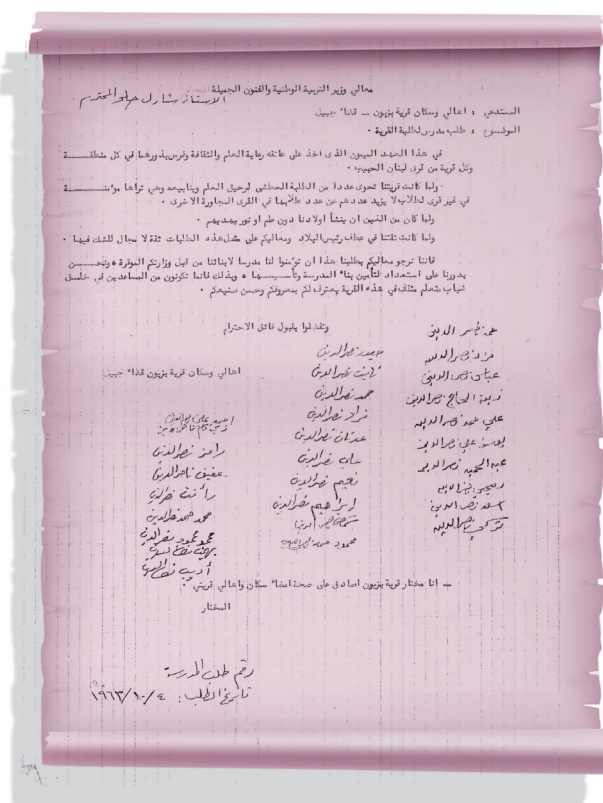 معالي وزير التربية الوطنية والفنون الجميلة
الاستاذ شارل حلو المحترم .
المستدعي : اهالي وسكان قرية بزيون ـ قضاء جبيل
الموضوع : طلب مدرس لطلبة القرية .
في هذا العهد الميمون الذي اخذ على عاتقه رعاية العلم والثقافة وغرس بذورهما في كل منطقـــة
وكل قرية من قرى لبنان الحبيب .
ولما كانت قريتنا تحوي عددا من الطلبة العطشى لرحيق العلم وينابيعه وهي تراها مؤمنـــة
في غير قرى لطلاب لا يزيد عددهم عن عدد طلابها في القرى المجاورة الاخرى .
ولما كان من الغبن ان ينشأ اولادنا دون علم او نور يهديهم .
ولما كانت ثقتنا في عطف رئيس البلاد ومعاليكم على مثل هذه الطلبات ثقة لا مجال للشك فيها .
فاننا نرجو معاليكم بطلبنا هذا ان تؤمنوا لنا مدرسا لابنائنا من قبل وزارتكم الموقرة ، ونحـــن
بدورنا على استعداد لتأمين بناء المدرسة وتأسيسهـا ، وبذلك فانما تكونون من المساعدين في خلـق
شباب متعلم مثقف في هذه القرية يعترف لكم بمعروفكم وحسن صنيعكم .
وتفضلوا بقبول فائق الاحترام
اهالي وسكان قرية بزيون قضاء جبيل
حمد ناصر الدين
مراد نصر الدين
عباس نصر الدين
علي حمد نصر الدين
يوسف علي نصر الدين
عبد الحميد نصر الدين
اسعد نصر الدين
حمد نصر الدين
مراد نصر الدين
عدنان نصر الدين
علي نصر الدين
نعيم نصر الدين
ابراهيم نصر الدين
رامز نصر الدين
عفيف ناصر الدين
رأفت نصر الدين
محمد حمد نصر الدين
محمد محمود نصر الدين
أديب نصر الدين
ـ إنا مختار قرية بزيون اصادق على صحة امضاء سكان واهالي قريتي .
المختار
رقم طلب المدرسة
تاريخ الطلب : ٤/١٠/١٩٦٣